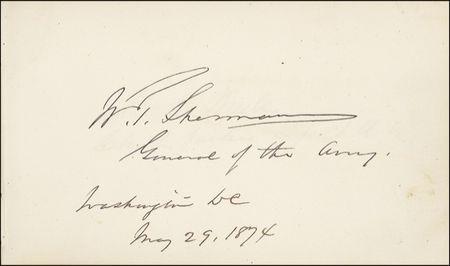 W. T. Sherman
General of the Army.
Washington DC
May 29, 1874